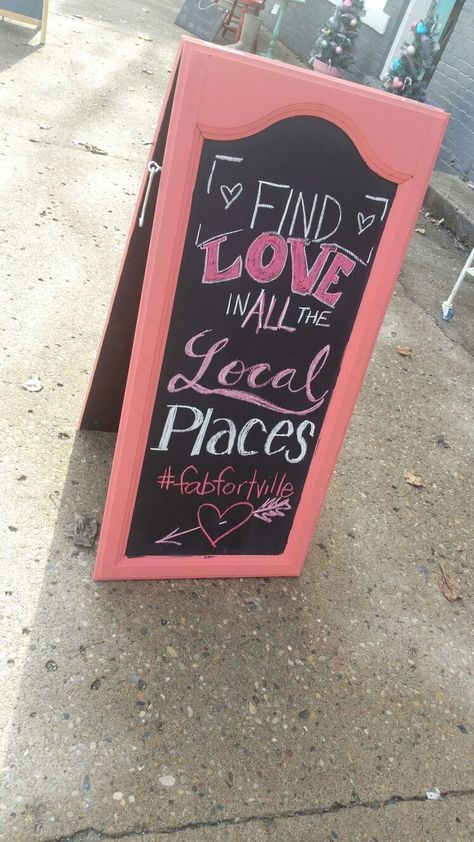 FIND
LOVE
IN ALL THE
Local
Places
#fabfortville